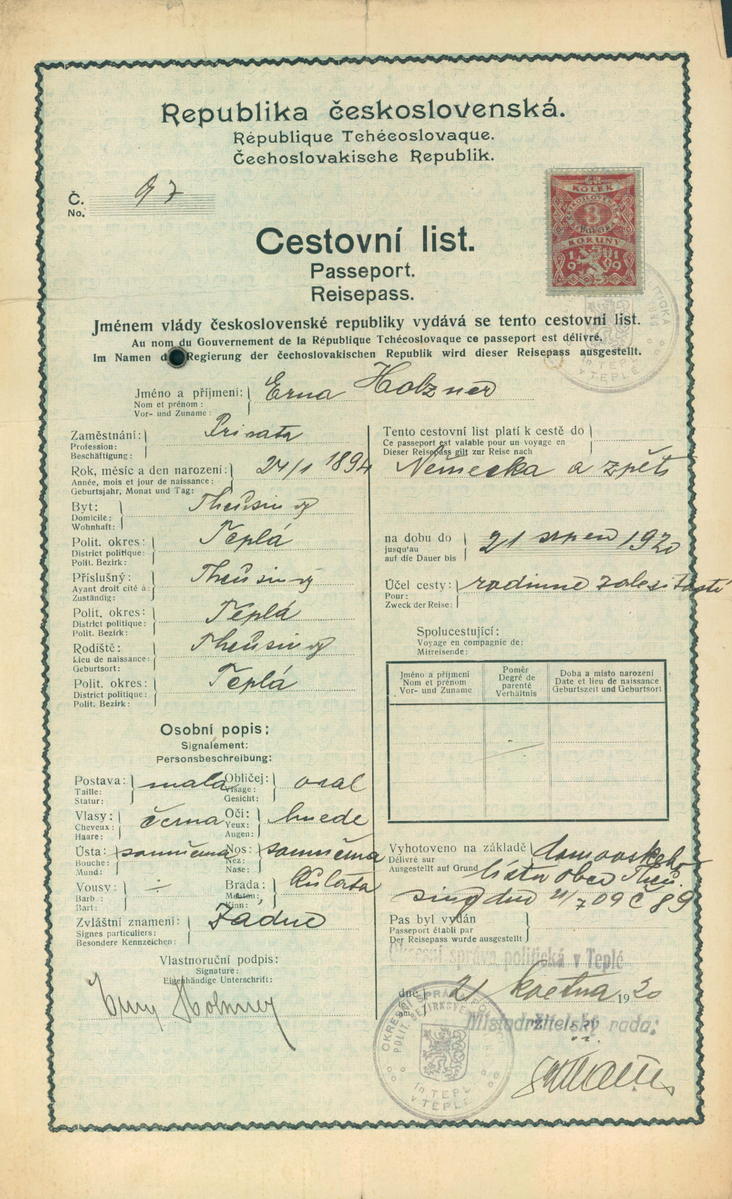 Republika československá.
République Tchécoslovaque.
Čechoslovakische Republik.
Č. 97
No.
KOLEK
ČESKOSLOVENSKÁ
3
REPUBLIKA
KORUNY
1919
Cestovní list.
Passeport.
Reisepass.
Jménem vlády československé republiky vydává se tento cestovní list.
Au nom du Gouvernement de la République Tchécoslovaque ce passeport est délivré.
Im Namen der Regierung der čechoslovakischen Republik wird dieser Reisepass ausgestellt.
v TEPLÉ
Jméno a příjmení: Erna Holzner
Nom et prénom:
Vor- und Zuname:
Zaměstnání: Privata
Profession:
Beschäftigung:
Rok, měsíc a den narození: 24/1 1894
Année, mois et jour de naissance:
Geburtsjahr, Monat und Tag:
Byt: Theusing
Domicile:
Wohnhaft:
Polit. okres: Teplá
District politique:
Polit. Bezirk:
Příslušný: Theusing
Ayant droit cité à:
Zuständig:
Polit. okres: Teplá
District politique:
Polit. Bezirk:
Rodiště: Theusing
Lieu de naissance:
Geburtsort:
Polit. okres: Teplá
District politique:
Polit. Bezirk:
Osobní popis:
Signalement:
Personsbeschreibung:
Postava: malá
Taille:
Statur:
Obličej: oval
Visage:
Gesicht:
Vlasy: černá
Cheveux:
Haare:
Oči: hnedé
Yeux:
Augen:
Ústa: souměrná
Bouche:
Mund:
Nos: souměrná
Nez:
Nase:
Vousy: ÷
Barb:
Bart:
Brada: kulatá
Menton:
Kinn:
Zvláštní znamení: Žádné
Signes particuliers:
Besondere Kennzeichen:
Vlastnoruční podpis:
Signature:
Eigenhändige Unterschrift:
Erny Holzner
Tento cestovní list platí k cestě do
Ce passeport est valable pour un voyage en
Dieser Reisepass gilt zur Reise nach
Německa a zpět
na dobu do 21 srpen 1920
jusqu'au
auf die Dauer bis
Účel cesty: rodinné záležitosti
Pour:
Zweck der Reise:
Spolucestující:
Voyage en compagnie de:
Mitreisende:
Jméno a příjmení
Nom et prénom
Vor- und Zuname
Poměr
Degré de parenté
Verhältnis
Doba a místo narození
Date et lieu de naissance
Geburtszeit und Geburtsort
÷
Vyhotoveno na základě domovského
Délivré sur
Ausgestellt auf Grund listu obce Theu-
sing dne
Pas byl vydán
Passeport établi par
Der Reisepass wurde ausgestellt
Okresní správa politická v Teplé
dne 21 května 1920
am
Místodržitelský rada:
OKRESNÍ SPRÁVA POLITICKÁ
POLIT. BEZIRKSVERWALTUNG
in TEPL
v TEPLÉ